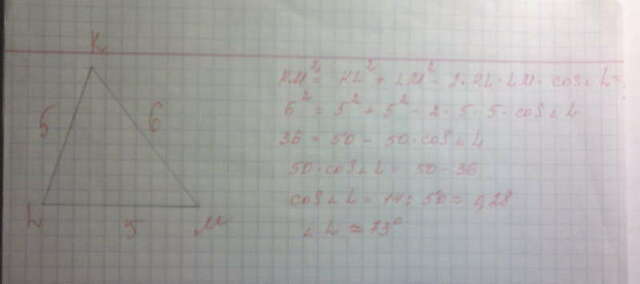 K
5
6
L
5
M
KM² = KL² + LM² - 2·KL·LM·cos∠L=
6² = 5² + 5² - 2·5·5·cos∠L
36 = 50 - 50·cos∠L
50·cos∠L = 50-36
cos∠L = 14:50 = 0,28
∠L ≈ 73°